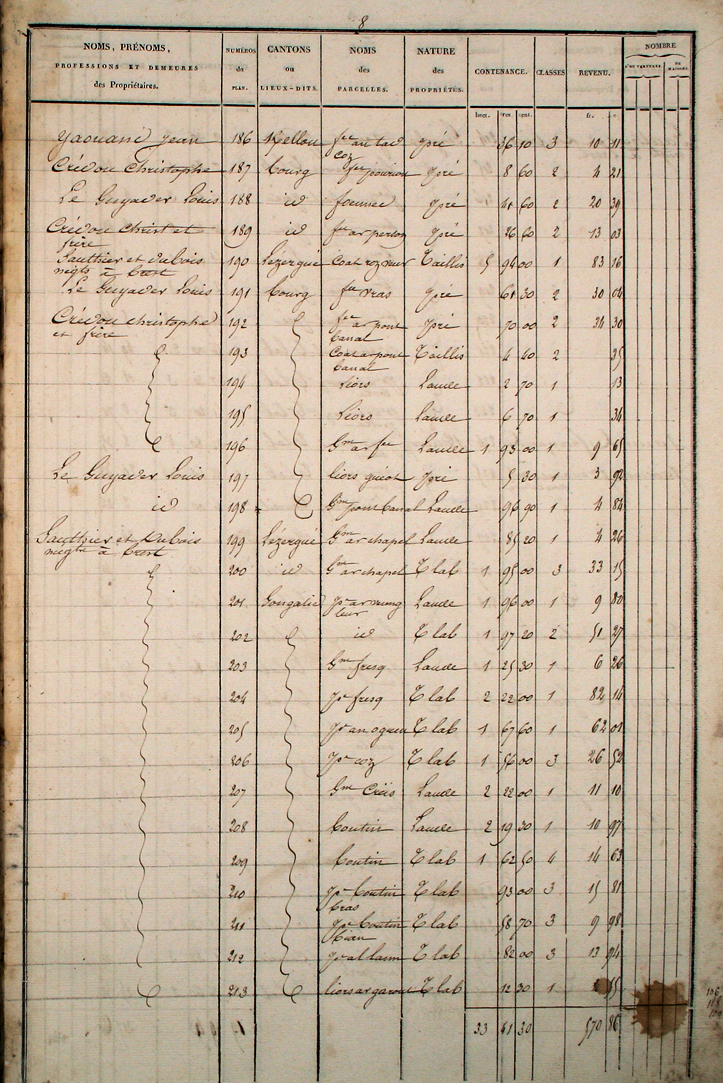 8
NOMS, PRÉNOMS, PROFESSIONS ET DEMEURES des Propriétaires. NUMÉROS du PLAN. CANTONS ou LIEUX-DITS. NOMS des PARCELLES. NATURE des PROPRIÉTÉS. CONTENANCE. CLASSES REVENU. NOMBRE
hect. ares. cent. fr. c.
yaouanc jean 186 Kellou pré 36 10 3 10 11
Crévou Christophe 187 bourg pré 8 60 2 4 21
Le Guyader Louis 188 id pré 41 60 2 20 39
Crévou Christ et frère 189 id pré 26 60 2 13 03
Sauthier et dubois negts à brest 190 Lézergué Taillis 5 94 00 1 83 16
Le Guyader Louis 191 bourg fn vras pré 61 30 2 30 04
Crévou christophe et frère 192 fn ar pont banal pré 70 00 2 34 30
193 Coat ar pont banal Taillis 4 40 2 35
194 Liors Lande 2 70 1 13
195 Liors Lande 6 70 1 34
196 Lande 1 93 00 1 9 65
Le Guyader Louis 197 liors pré 5 30 1 3 92
id 198 Gm pont banal Lande 96 90 1 4 84
Sauthier et Dubois negts à brest 199 Lézergué Gm ar chapel Lande 85 20 1 4 26
200 id Gm ar chapel T lab 1 95 00 3 33 15
201 Lande 1 96 00 1 9 80
202 id T lab 1 97 20 2 51 27
203 Gm fresq Lande 1 25 30 1 6 26
204 pc fresq T lab 2 22 00 1 82 14
205 T lab 1 67 60 1 62 01
206 pc coz T lab 1 56 00 3 26 52
207 Gm Lande 2 22 00 1 11 10
208 boutin Lande 2 19 30 1 10 97
209 boutin T lab 1 62 50 4 14 63
210 pc boutin bras T lab 93 00 3 15 81
211 pc boutin bian T lab 58 70 3 9 98
212 T lab 82 00 3 13 94
213 T lab 12 30 1
33 61 30 570 86